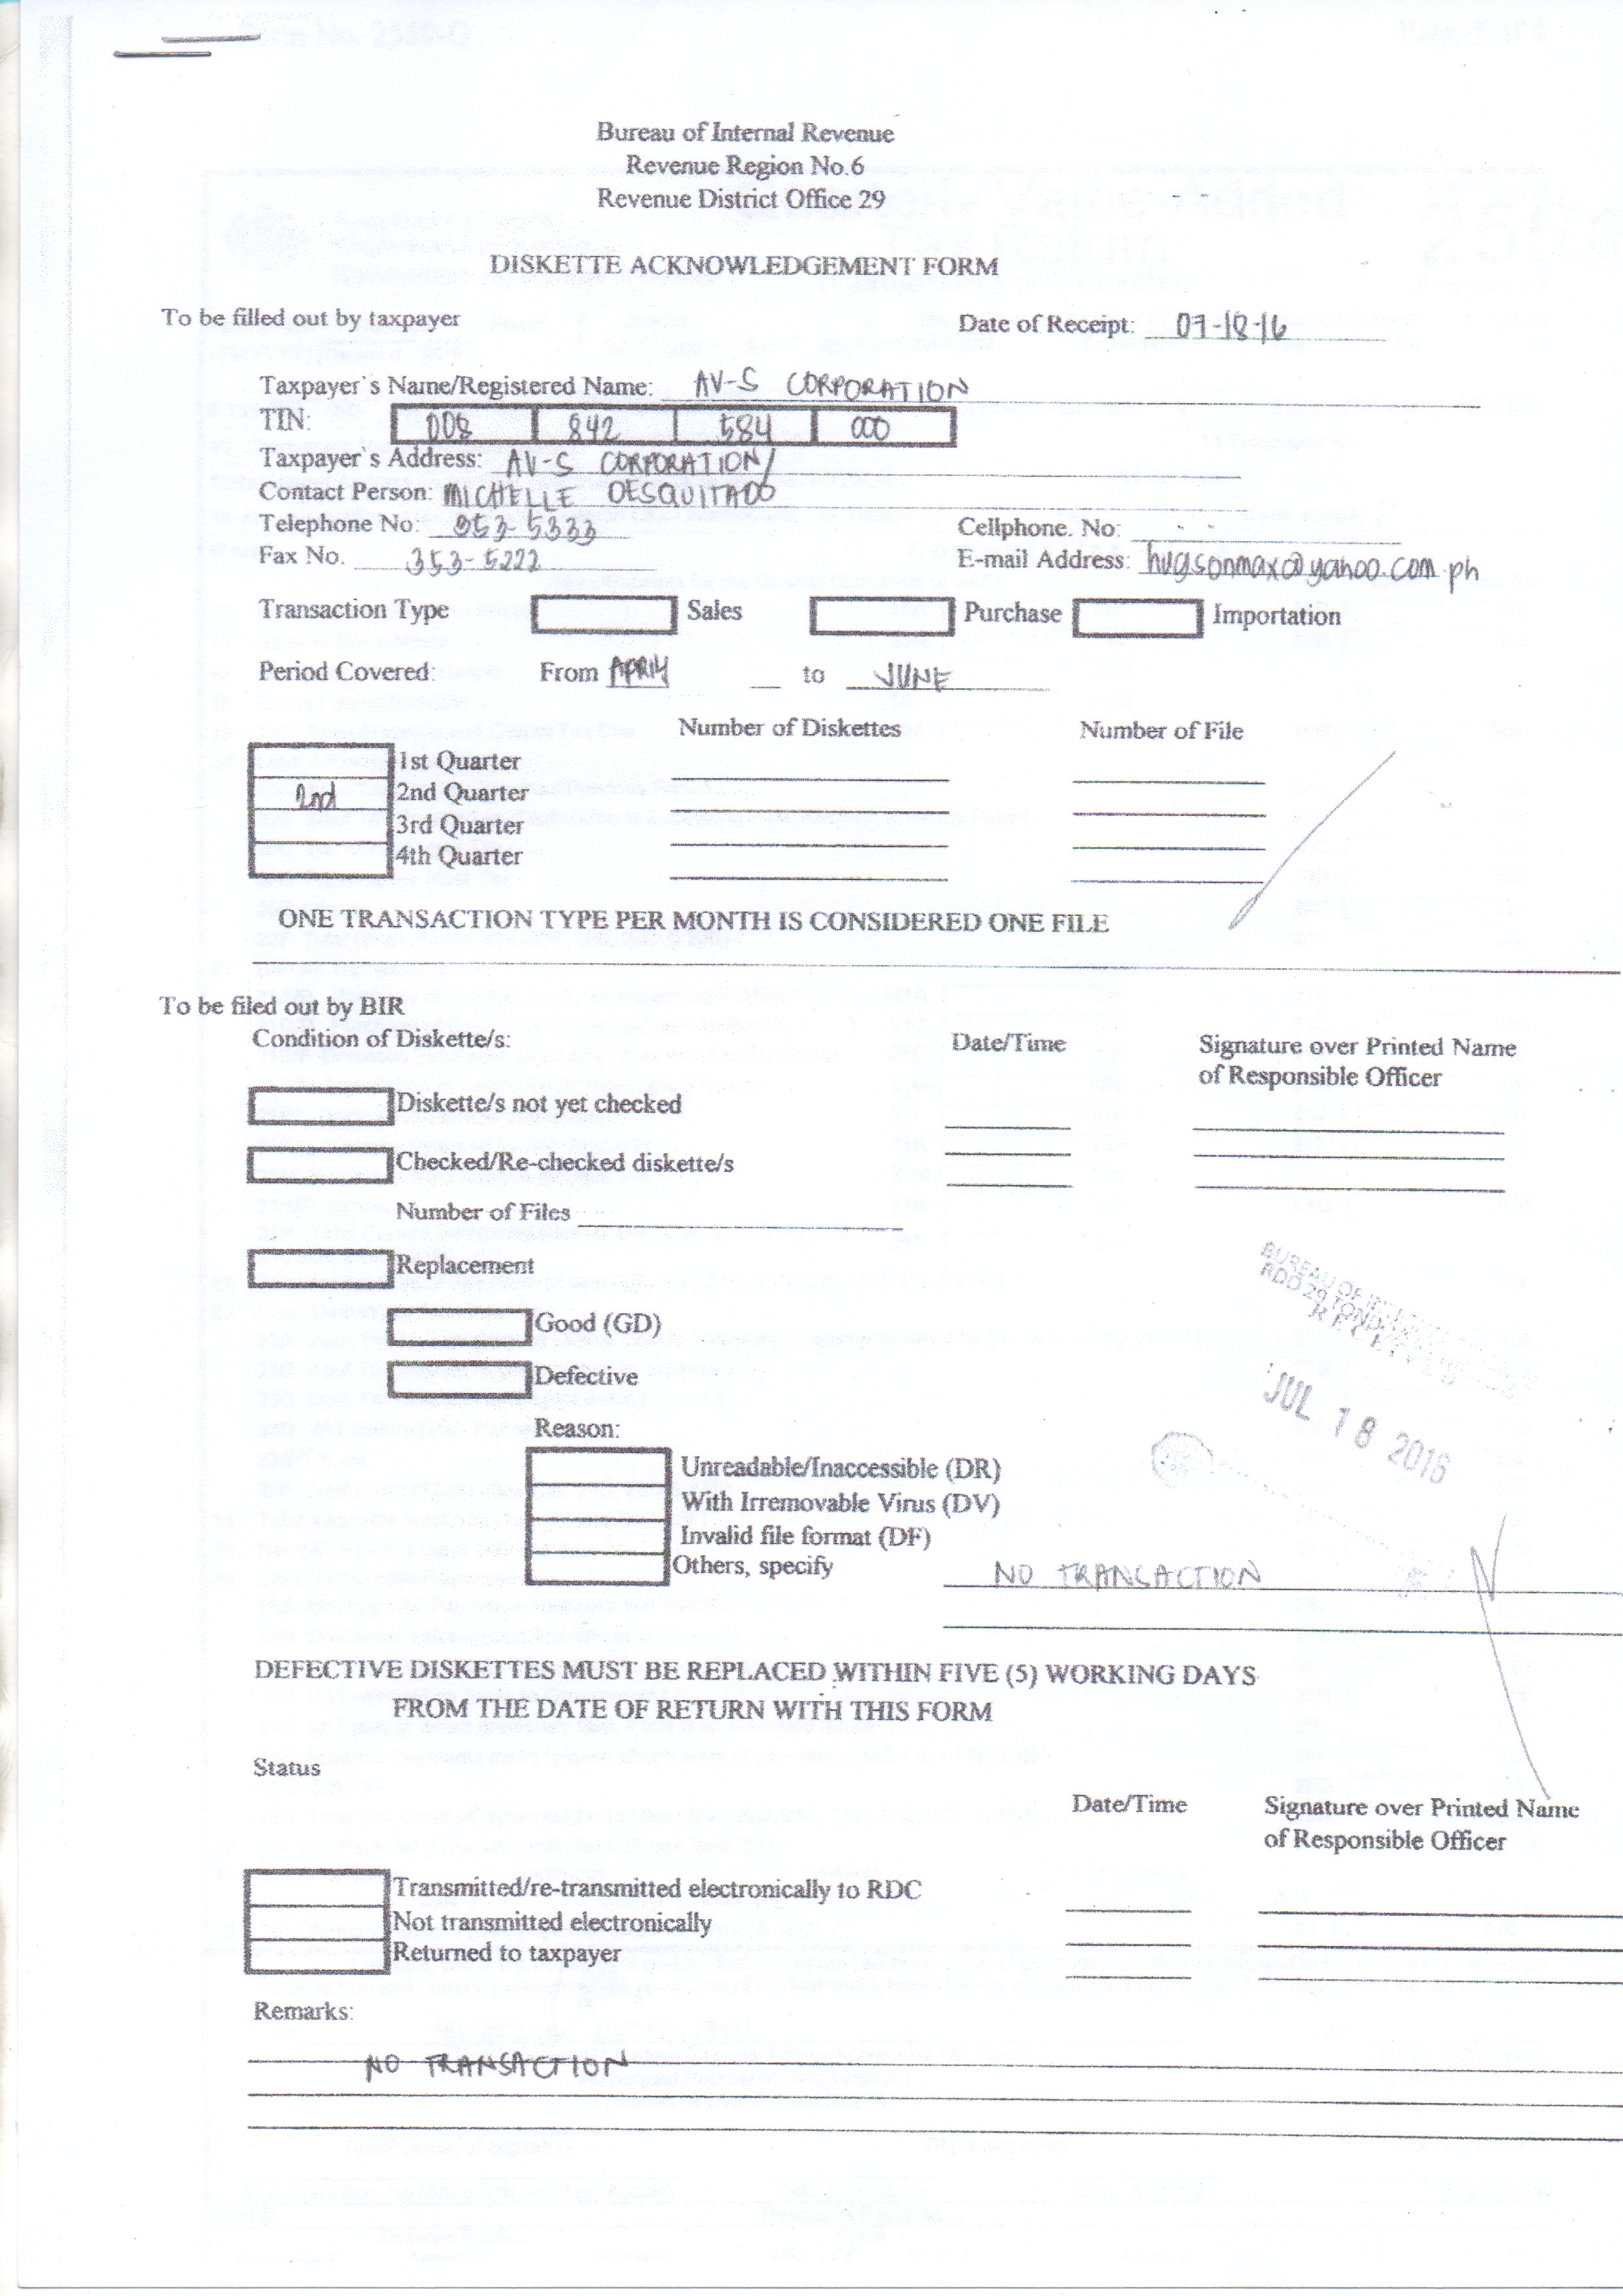 Bureau of Internal Revenue
Revenue Region No.6
Revenue District Office 29
DISKETTE ACKNOWLEDGEMENT FORM
To be filled out by taxpayer
Date of Receipt: 07-18-16
Taxpayer`s Name/Registered Name: AV-S CORPORATION
TIN: 008 842 584 000
Taxpayer`s Address: AV-S CORPORATION/
Contact Person: MICHELLE DESQUITADO
Telephone No: 353-5333
Cellphone. No: - -
Fax No. 353-5222
E-mail Address: hugsonmax@yahoo.com.ph
Transaction Type Sales Purchase Importation
Period Covered: From APRIL to JUNE
Number of Diskettes Number of File
1st Quarter
2nd 2nd Quarter
3rd Quarter
4th Quarter
ONE TRANSACTION TYPE PER MONTH IS CONSIDERED ONE FILE
To be filed out by BIR
Condition of Diskette/s: Date/Time Signature over Printed Name
of Responsible Officer
Diskette/s not yet checked
Checked/Re-checked diskette/s
Number of Files
Replacement
BUREAU OF
RDO 29 TONDO
RECEIVED
Good (GD)
Defective
JUL 18 2016
Reason:
Unreadable/Inaccessible (DR)
With Irremovable Virus (DV)
Invalid file format (DF)
Others, specify NO TRANSACTION
DEFECTIVE DISKETTES MUST BE REPLACED WITHIN FIVE (5) WORKING DAYS
FROM THE DATE OF RETURN WITH THIS FORM
Status
Date/Time Signature over Printed Name
of Responsible Officer
Transmitted/re-transmitted electronically to RDC
Not transmitted electronically
Returned to taxpayer
Remarks:
NO TRANSACTION